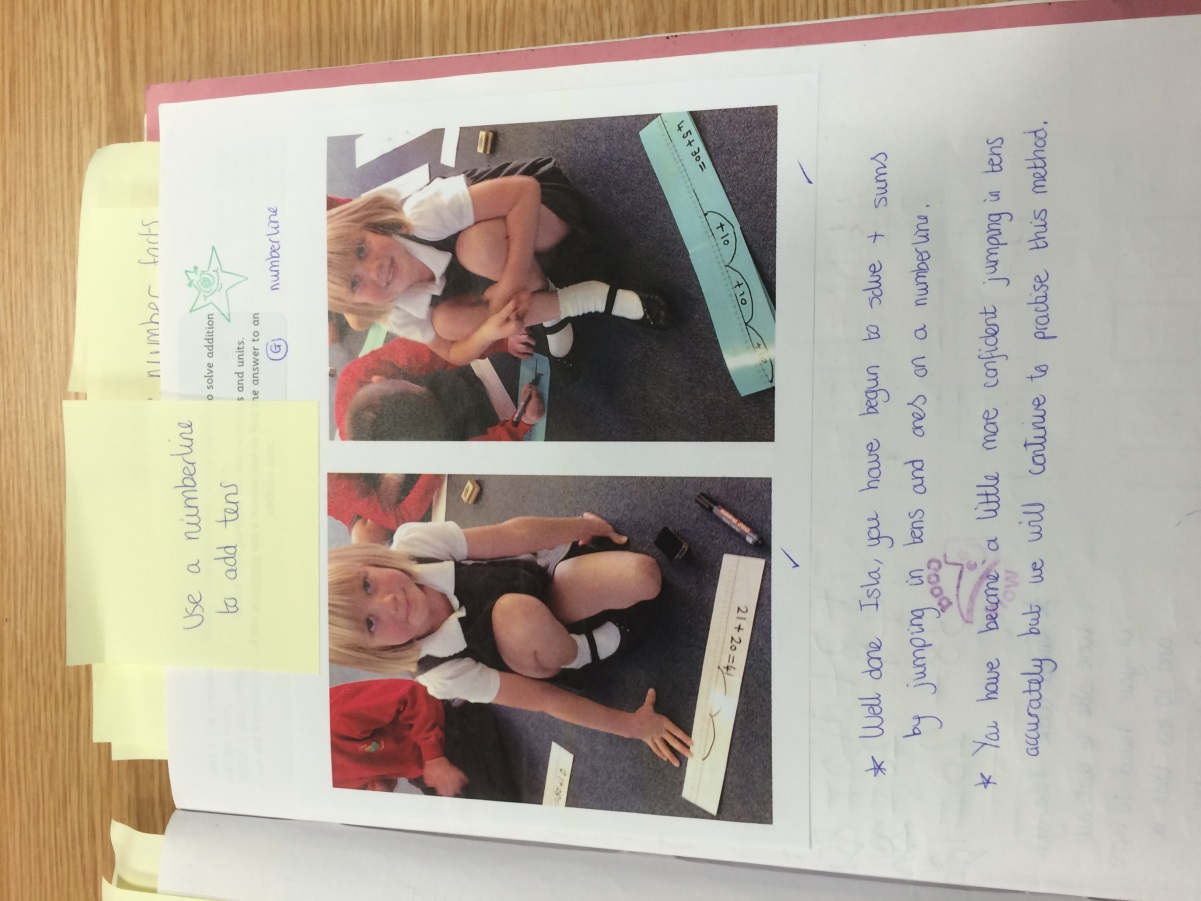 number facts
Use a numberline
to add tens
o solve addition
s and units.
he answer to an
G
numberline
21 + 20 = 41
+10
+10
* Well done Isla, you have begun to solve + sums
by jumping in tens and ones on a numberline.
* You have become a little more confident jumping in tens
accurately but we will continue to practise this method.
WOW